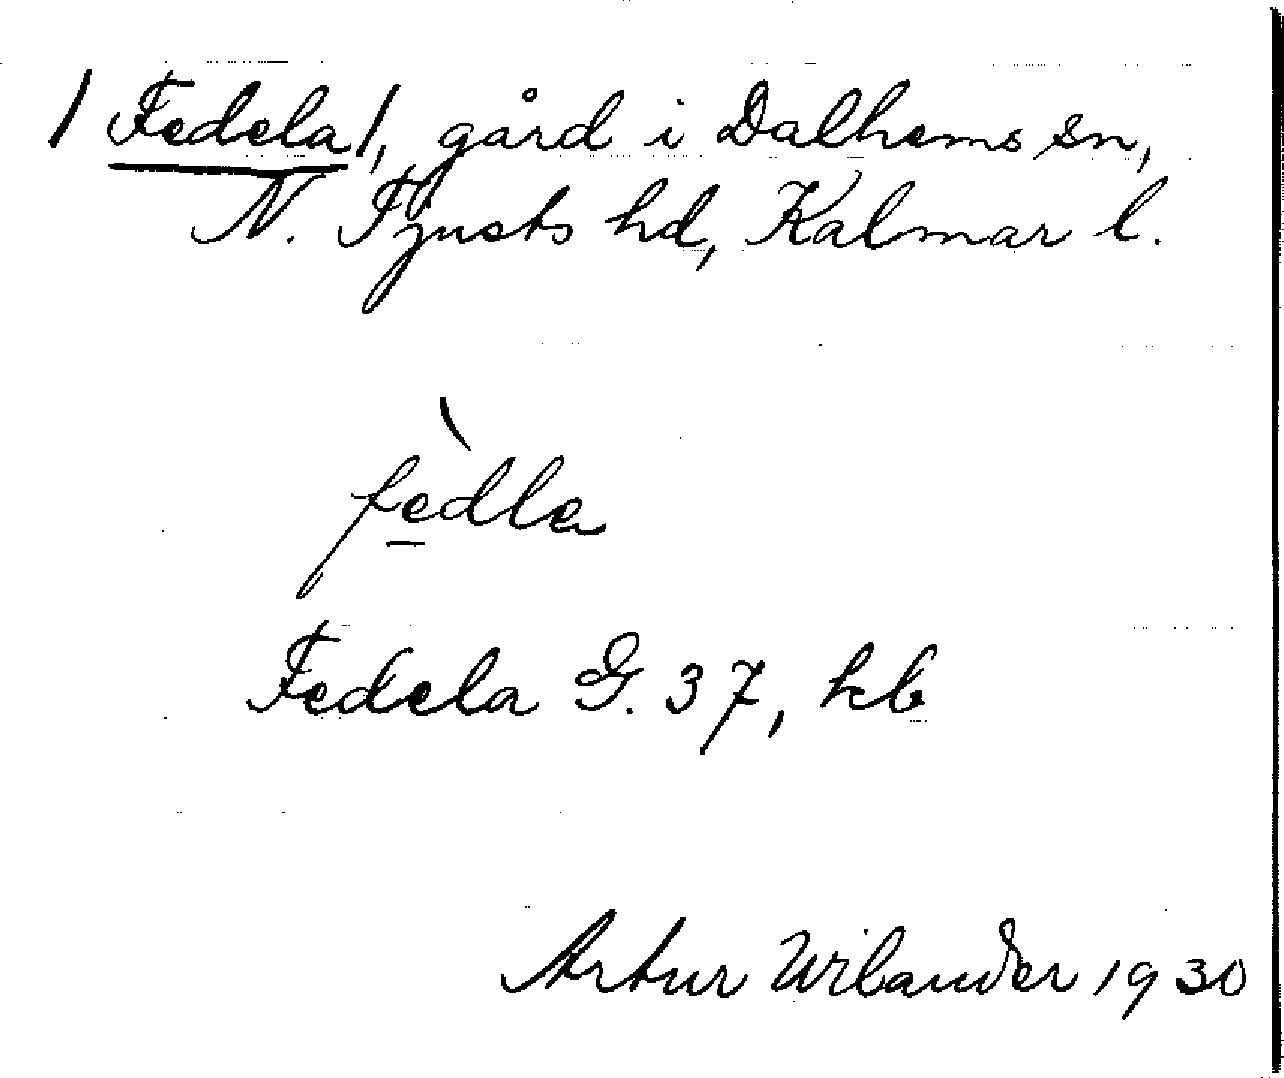 /Fedela/, gård i Dalhems sn,
N. Tjusts hd, Kalmar l.
fèdla
Fedela G. 37, kb
Artur Wilander 1930